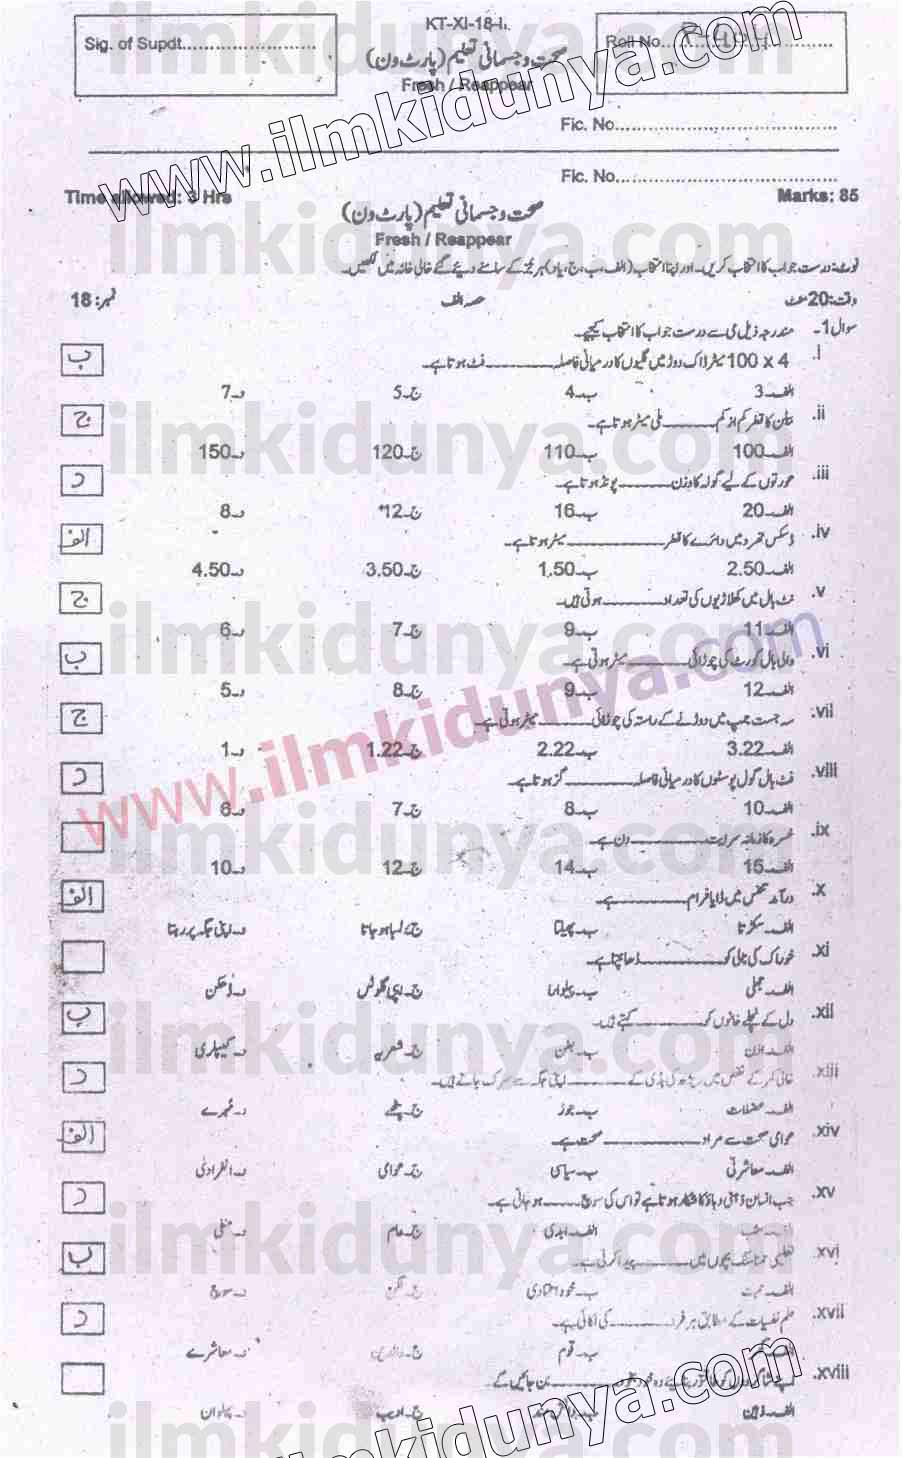 KT-XI-18-I.
Sig. of Supdt
Roll No
صحت و جسمانی تعلیم (پارٹ ون)
Fresh / Reappear
Fic. No
Fic. No
Time allowed: 3 Hrs
Marks: 85
صحت و جسمانی تعلیم (پارٹ ون)
Fresh / Reappear
نوٹ: درست جواب کا انتخاب کریں۔ اور اپنا انتخاب (الف، ب، ج، یا د) ہر جز کے سامنے دیئے گئے خالی خانہ میں لکھیں۔
وقت: 20 منٹ حصہ الف نمبر: 18
سوال 1۔ مندرجہ ذیل میں سے درست جواب کا انتخاب کیجیے۔
i. 100 x 4 میٹر ڈاک دوڑ میں گلیوں کا درمیانی فاصلہ ______ فٹ ہوتا ہے۔ ب
الف۔ 3 ب۔ 4 ج۔ 5 د۔ 7
ii. بیٹن کا قطر کم از کم ______ ملی میٹر ہوتا ہے۔ ج
الف۔ 100 ب۔ 110 ج۔ 120 د۔ 150
iii. عورتوں کے لیے گولہ کا وزن ______ پونڈ ہوتا ہے۔ د
الف۔ 20 ب۔ 16 ج۔ 12 د۔ 8
iv. ڈسکس تھرو میں دائرے کا قطر ______ میٹر ہوتا ہے۔ الف
الف۔ 2.50 ب۔ 1.50 ج۔ 3.50 د۔ 4.50
v. نٹ بال میں کھلاڑیوں کی تعداد ______ ہوتی ہیں۔ ج
الف۔ 11 ب۔ 9 ج۔ 7 د۔ 6
vi. والی بال کورٹ کی چوڑائی ______ میٹر ہوتی ہے۔ ب
الف۔ 12 ب۔ 9 ج۔ 8 د۔ 5
vii. سہ جست جمپ میں دوڑنے کے راستہ کی چوڑائی ______ میٹر ہوتی ہے۔ ج
الف۔ 3.22 ب۔ 2.22 ج۔ 1.22 د۔ 1
viii. فٹ بال گول پوسٹوں کا درمیانی فاصلہ ______ گز ہوتا ہے۔ د
الف۔ 10 ب۔ 8 ج۔ 7 د۔ 6
ix. خسرہ کا زمانہ سرایت ______ دن ہے۔
الف۔ 15 ب۔ 14 ج۔ 12 د۔ 10
x. درآمد تنفس میں ڈایافرام ______ ہے۔ الف
الف۔ سکڑتا ب۔ پھیلتا ج۔ لمبا ہو جاتا د۔ اپنی جگہ پر رہتا
xi. خوراک کی نالی کو ______ ڈھانپتا ہے۔
الف۔ جھلی ب۔ پلورا ج۔ اپی گلوٹس د۔ ڈھکن
xii. دل کے نچلے خانوں کو ______ کہتے ہیں۔ ب
الف۔ اذن ب۔ بطن ج۔ شعریہ د۔ کیپلری
xiii. خالی کمر کے نقص میں ریڑھ کی ہڈی کے ______ اپنی جگہ سے سرک جاتے ہیں۔ د
الف۔ عضلات ب۔ جوڑ ج۔ پٹھے د۔ مہرے
xiv. عوامی صحت سے مراد ______ صحت ہے۔ الف
الف۔ معاشرتی ب۔ سیاسی ج۔ عوامی د۔ انفرادی
xv. جب انسان ذہنی دباؤ کا شکار ہوتا ہے تو اس کی سوچ ______ ہو جاتی ہے۔ د
الف۔ ابدی ج۔ عام د۔ منفی
xvi. تعلیمی جمناسٹک بچوں میں ______ پیدا کرتی ہے۔ ب
الف۔ ب۔ خود اعتمادی ج۔ د۔ سوچ
xvii. علم نفسیات کے مطابق ہر فرد ______ کی اکائی ہے۔ د
الف۔ ب۔ قوم ج۔ والدین د۔ معاشرے
xviii. بن جائیں گے۔
الف۔ ذہین ب۔ ج۔ ادیب د۔ پہلوان
www.ilmkidunya.com
ilmkidunya.com